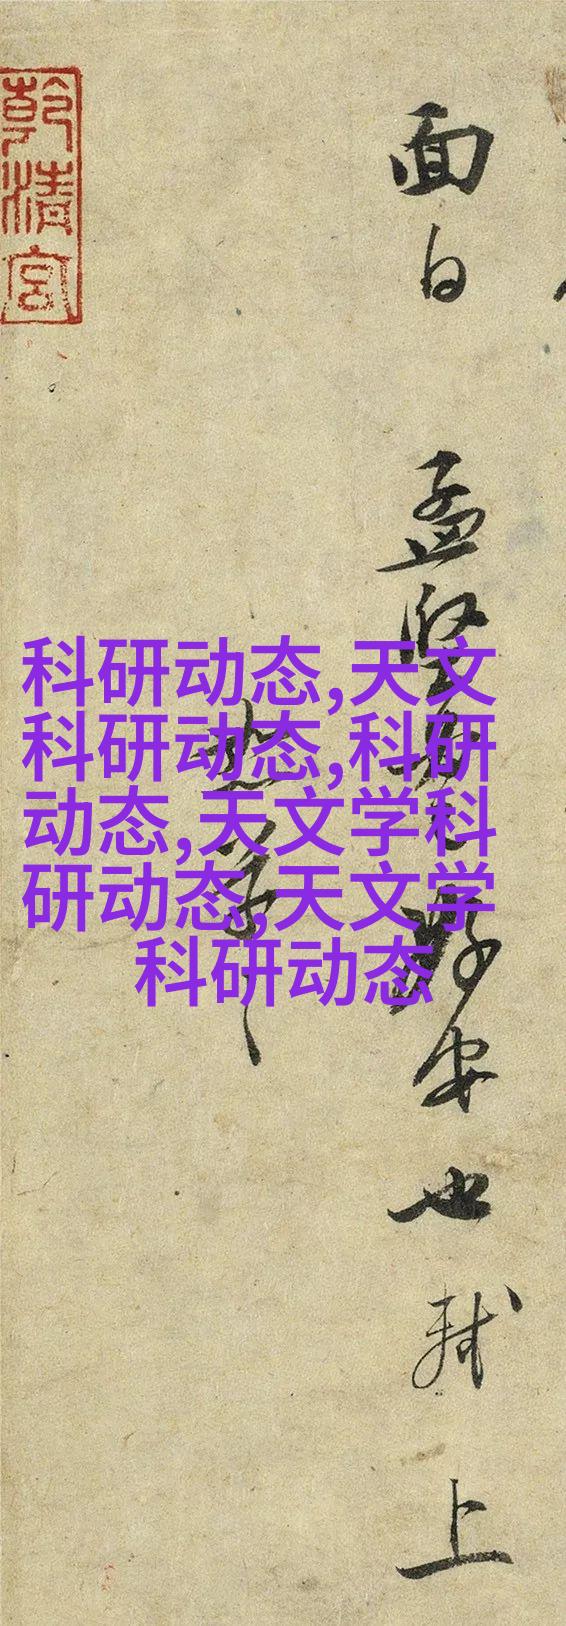 面白 孟堅 安也 軾上
科研动态,天文
科研动态,科研
动态,天文学科
研动态,天文学
科研动态
乾清宮